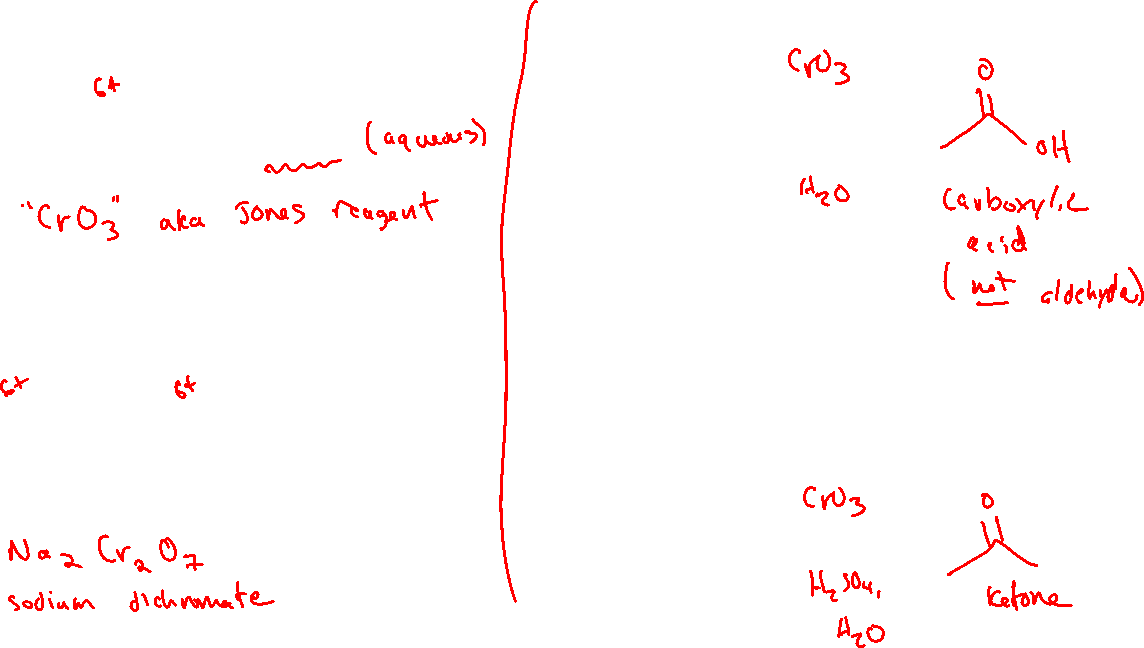 6+
(aqueous)
"CrO3" aka Jones reagent
6+ 6+
Na2Cr2O7
sodium dichromate
CrO3
O
OH
H2O
carboxylic
acid
(not aldehyde)
CrO3
O
H2SO4,
H2O
Ketone